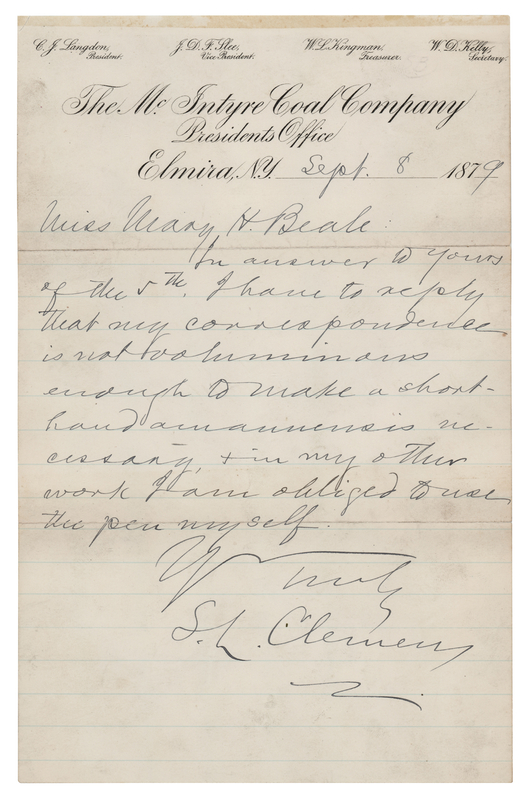 C. J. Langdon, J. D. F. Slee, W. L. Kingman, W. D. Kelly,
President. Vice President. Treasurer. Secretary.
The Mc Intyre Coal Company
Presidents Office
Elmira, N.Y. Sept. 8 1879
Miss Mary H. Beale:
In answer to yours
of the 5th, I have to reply
that my correspondence
is not voluminous
enough to make a short-
hand amanuensis ne-
cessary, & in my other
work I am obliged to use
the pen myself.
Yrs Truly
S. L. Clemens